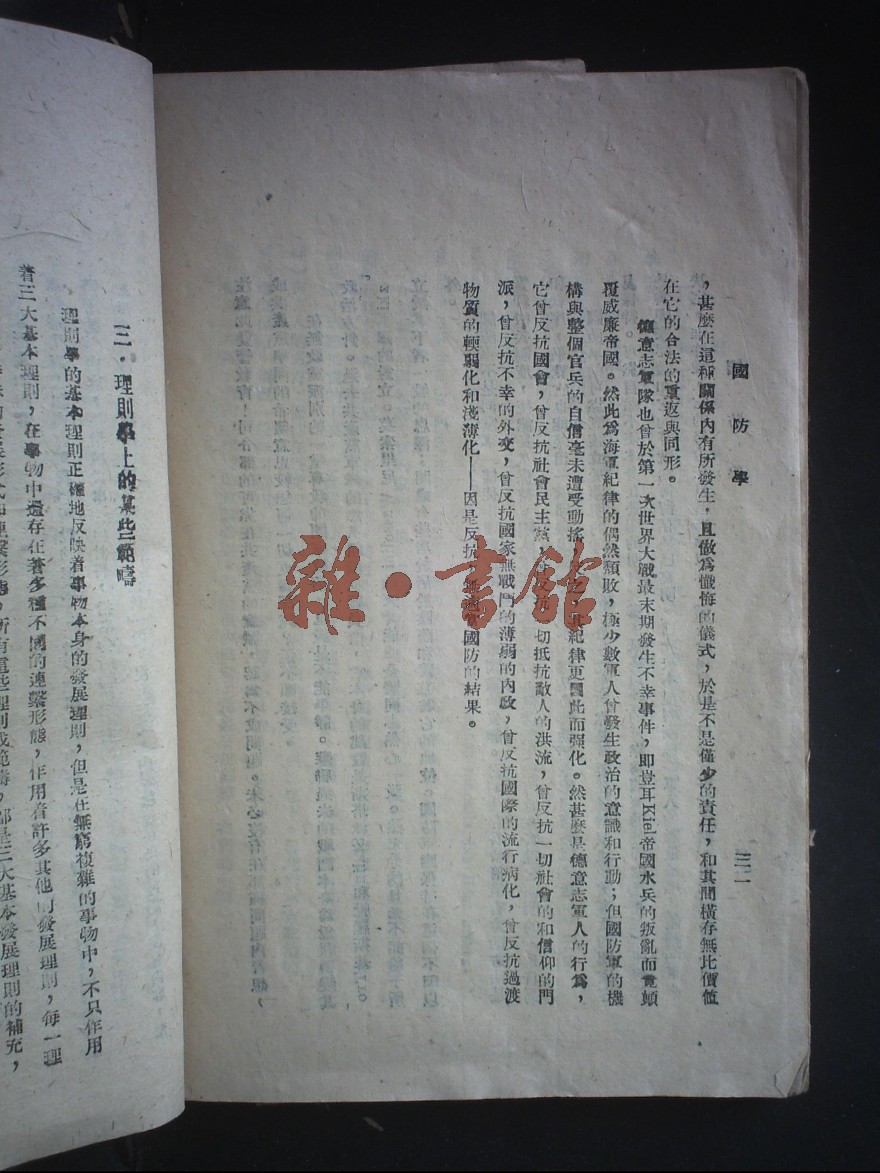 國防學
三二
，甚麼在這種關係內有所發生，且做為懺悔的儀式，於是不是僅少的責任，和其間橫存無比價值
在它的合法的重返與同形。
德意志軍隊也曾於第一次世界大戰最末期發生不幸事件，即豈耳Kiel帝國水兵的叛亂而竟傾
覆威廉帝國。然此為海軍紀律的偶然頹敗，極少數軍人曾發生政治的意識和行動；但國防軍的機
構與整個官兵的自信毫未遭受動搖，其紀律更因此而强化。然甚麼是德意志軍人的行為，
它曾反抗國會，曾反抗社會民主黨，曾反抗一切抵抗敵人的洪流，曾反抗一切社會的和信仰的門
派，曾反抗不幸的外交，曾反抗國家無戰鬥的薄弱的內政，曾反抗國際的流行病化，曾反抗過渡
物質的輭弱化和淺薄化——因是反抗，國防的結果。
雜·書館
三·理則學上的某些範疇
理則學的基本理則正確地反映着事物本身的發展理則，但是在無窮複雜的事物中，不只作用
着三大基本理則，在事物中還存在着多種不同的連繫形態，作用者許多其他的發展理則，每一理
發展形式和連繫形態，所有這些理則或範疇，都是三大基本發展理則的補充，